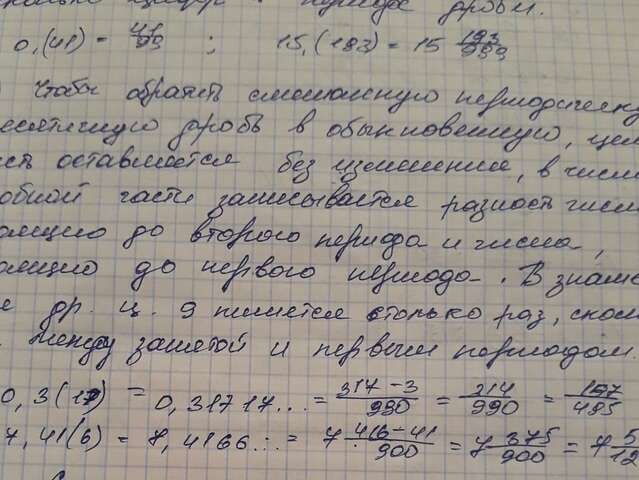 дроби.
0,(41) = 41/99 ; 15,(193) = 15 193/999
Чтобы обратить смешанную периодическу
десятичную дробь в обыкновенную, цел
сть оставляется без изменения, в числи
обной части записывается разность числа
оящего до второго периода и числа,
оящего до первого периода. В знаме
е др. ц. 9 пишется столько раз, скол
между запятой и первым периодом.
0,3(17) = 0,31717... = 317-3/990 = 314/990 = 157/495
7,41(6) = 7,4166... = 7 416-41/900 = 7 375/900 = 7 5/12